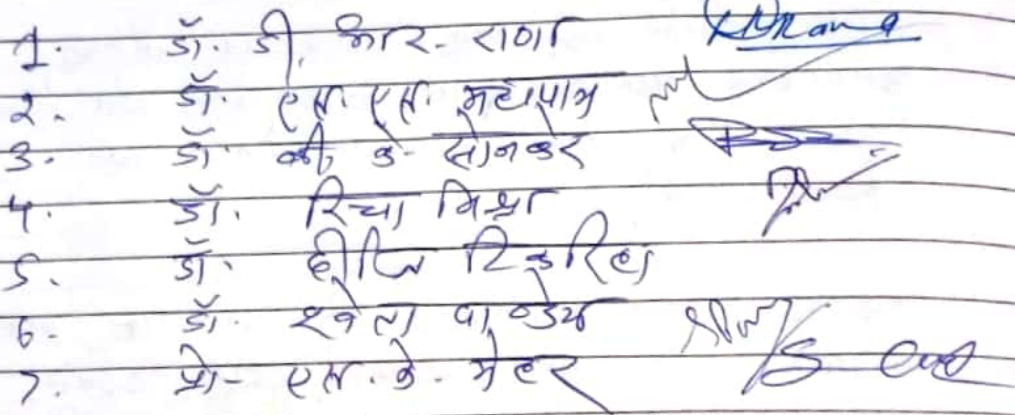 1. डॉ. डी. आर. राणा
2. डॉ. एस. एस. महापात्र
3. डॉ. व्ही. के. सोनकर
4. डॉ. रिचा मिश्रा
5. डॉ. दीप्ति टिकरिहा
6. डॉ. श्वेता पाण्डेय
7. प्रो- एस. के. मेहर